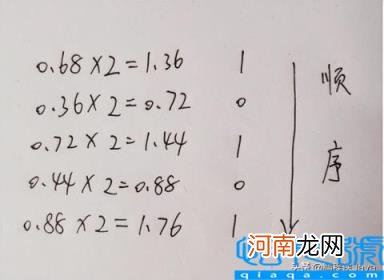 0.68×2=1.36 1
0.36×2=0.72 0
0.72×2=1.44 1
0.44×2=0.88 0
0.88×2=1.76 1
顺
序
河南龙网
qiaqa.com